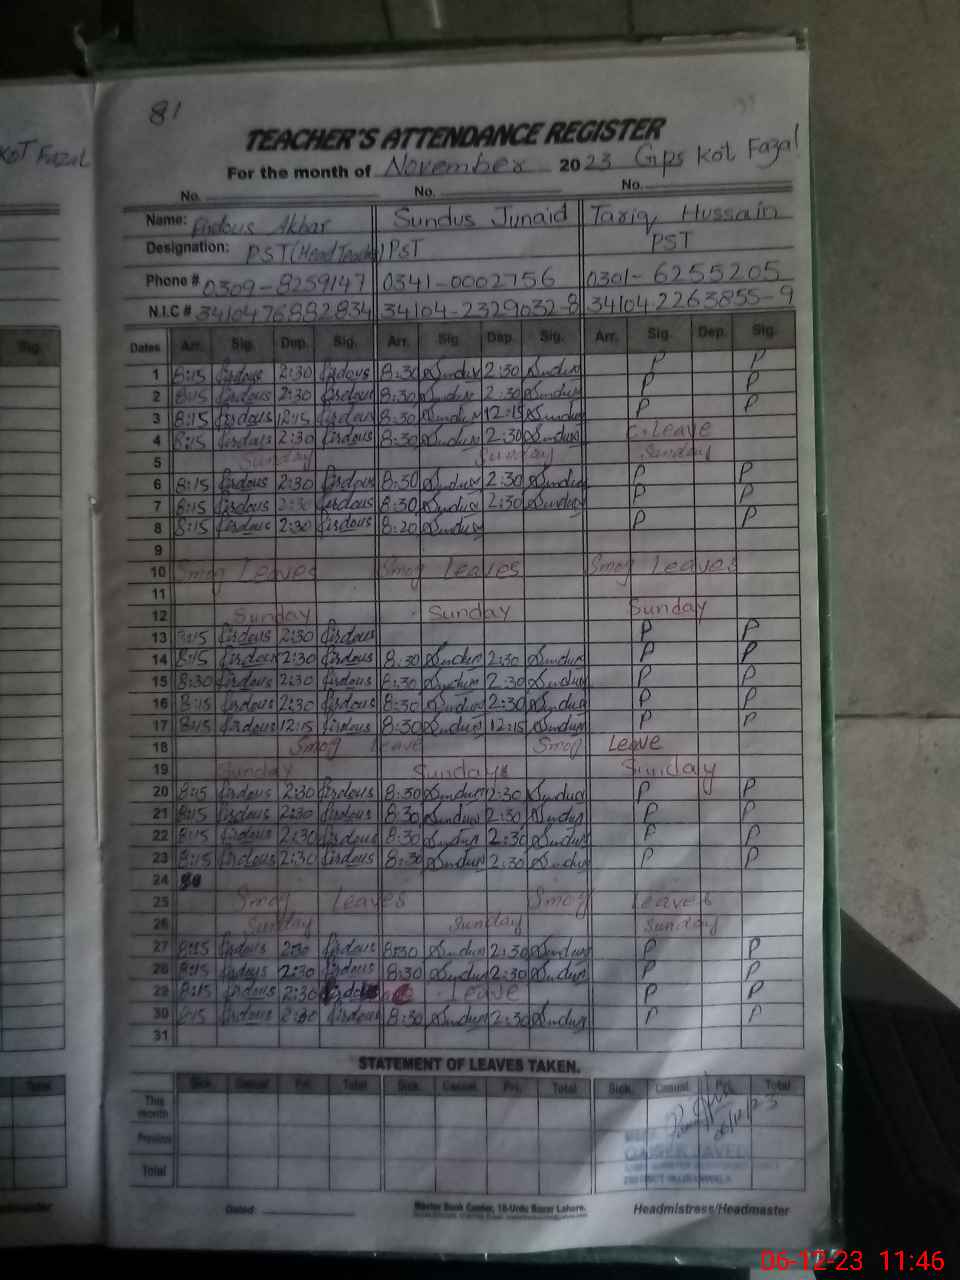 81
TEACHER'S ATTENDANCE REGISTER
KoT Fazal
For the month of November 2023 Gps Kot Fazal
No. No. No.
Name: Firdous Akhar Sundus Junaid Tariq Hussain
Designation: PST (Head Teacher) PST PST
Phone # 0309-8259147 0341-0002756 0301-6255205
N.I.C # 3410476882834 34104-2329032-8 34104 2263855-9
Sig. Dates Arr. Sig. Dep. Sig. Arr. Sig. Dep. Sig. Arr. Sig. Dep. Sig.
1 8:15 firdous 2:30 firdous 8:30 Sundus 2:30 Sundus P P
2 8:15 firdous 2:30 firdous 8:30 Sundus 2:30 Sundus P P
3 8:15 firdous 12:15 firdous 8:30 Sundus 12:15 Sundus P P
4 8:15 firdous 2:30 firdous 8:30 Sundus 2:30 Sundus C-Leave
5 Sunday Sunday Sunday
6 8:15 firdous 2:30 firdous 8:30 Sundus 2:30 Sundus P P
7 8:15 firdous 2:30 firdous 8:30 Sundus 2:30 Sundus P P
8 8:15 firdous 2:30 firdous 8:20 Sundus P P
9
10 Smog Leaves Smog Leaves Smog Leaves
11
12 Sunday Sunday Sunday
13 8:15 firdous 2:30 firdous P P
14 8:15 firdous 2:30 firdous 8:30 Sundus 2:30 Sundus P P
15 8:30 firdous 2:30 firdous 8:30 Sundus 2:30 Sundus P P
16 8:15 firdous 2:30 firdous 8:30 Sundus 2:30 Sundus P P
17 8:15 firdous 12:15 firdous 8:30 Sundus 12:15 Sundus P P
18 Smog leave Smog Leave
19 Sunday Sunday Sunday
20 8:15 firdous 2:30 firdous 8:30 Sundus 2:30 Sundus P P
21 8:15 firdous 2:30 firdous 8:30 Sundus 2:30 Sundus P P
22 8:15 firdous 2:30 firdous 8:30 Sundus 2:30 Sundus P P
23 8:15 firdous 2:30 firdous 8:30 Sundus 2:30 Sundus P P
24
25 Smog Leaves Smog Leaves
26 Sunday Sunday Sunday
27 8:15 firdous 2:30 firdous 8:30 Sundus 2:30 Sundus P P
28 8:15 firdous 2:30 firdous 8:30 Sundus 2:30 Sundus P P
29 8:15 firdous 2:30 firdous Leave P P
30 8:15 firdous 2:30 firdous 8:30 Sundus 2:30 Sundus P P
31
STATEMENT OF LEAVES TAKEN.
Total Sick. Casual Pri. Total Sick. Casual Pri. Total Sick. Casual Pri. Total
This month
Previous
Total
Dated: Master Book Center, 18-Urdu Bazar Lahore. Headmistress/Headmaster
06-12-23 11:46